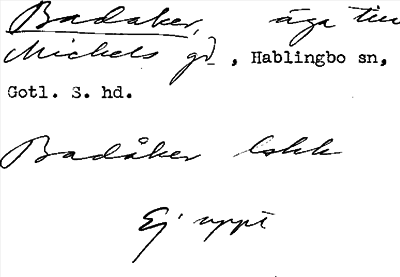 Badåker, äga till
Michels gd, Hablingbo sn,
Gotl. S. hd.
Badåker lskk
Ej uppt